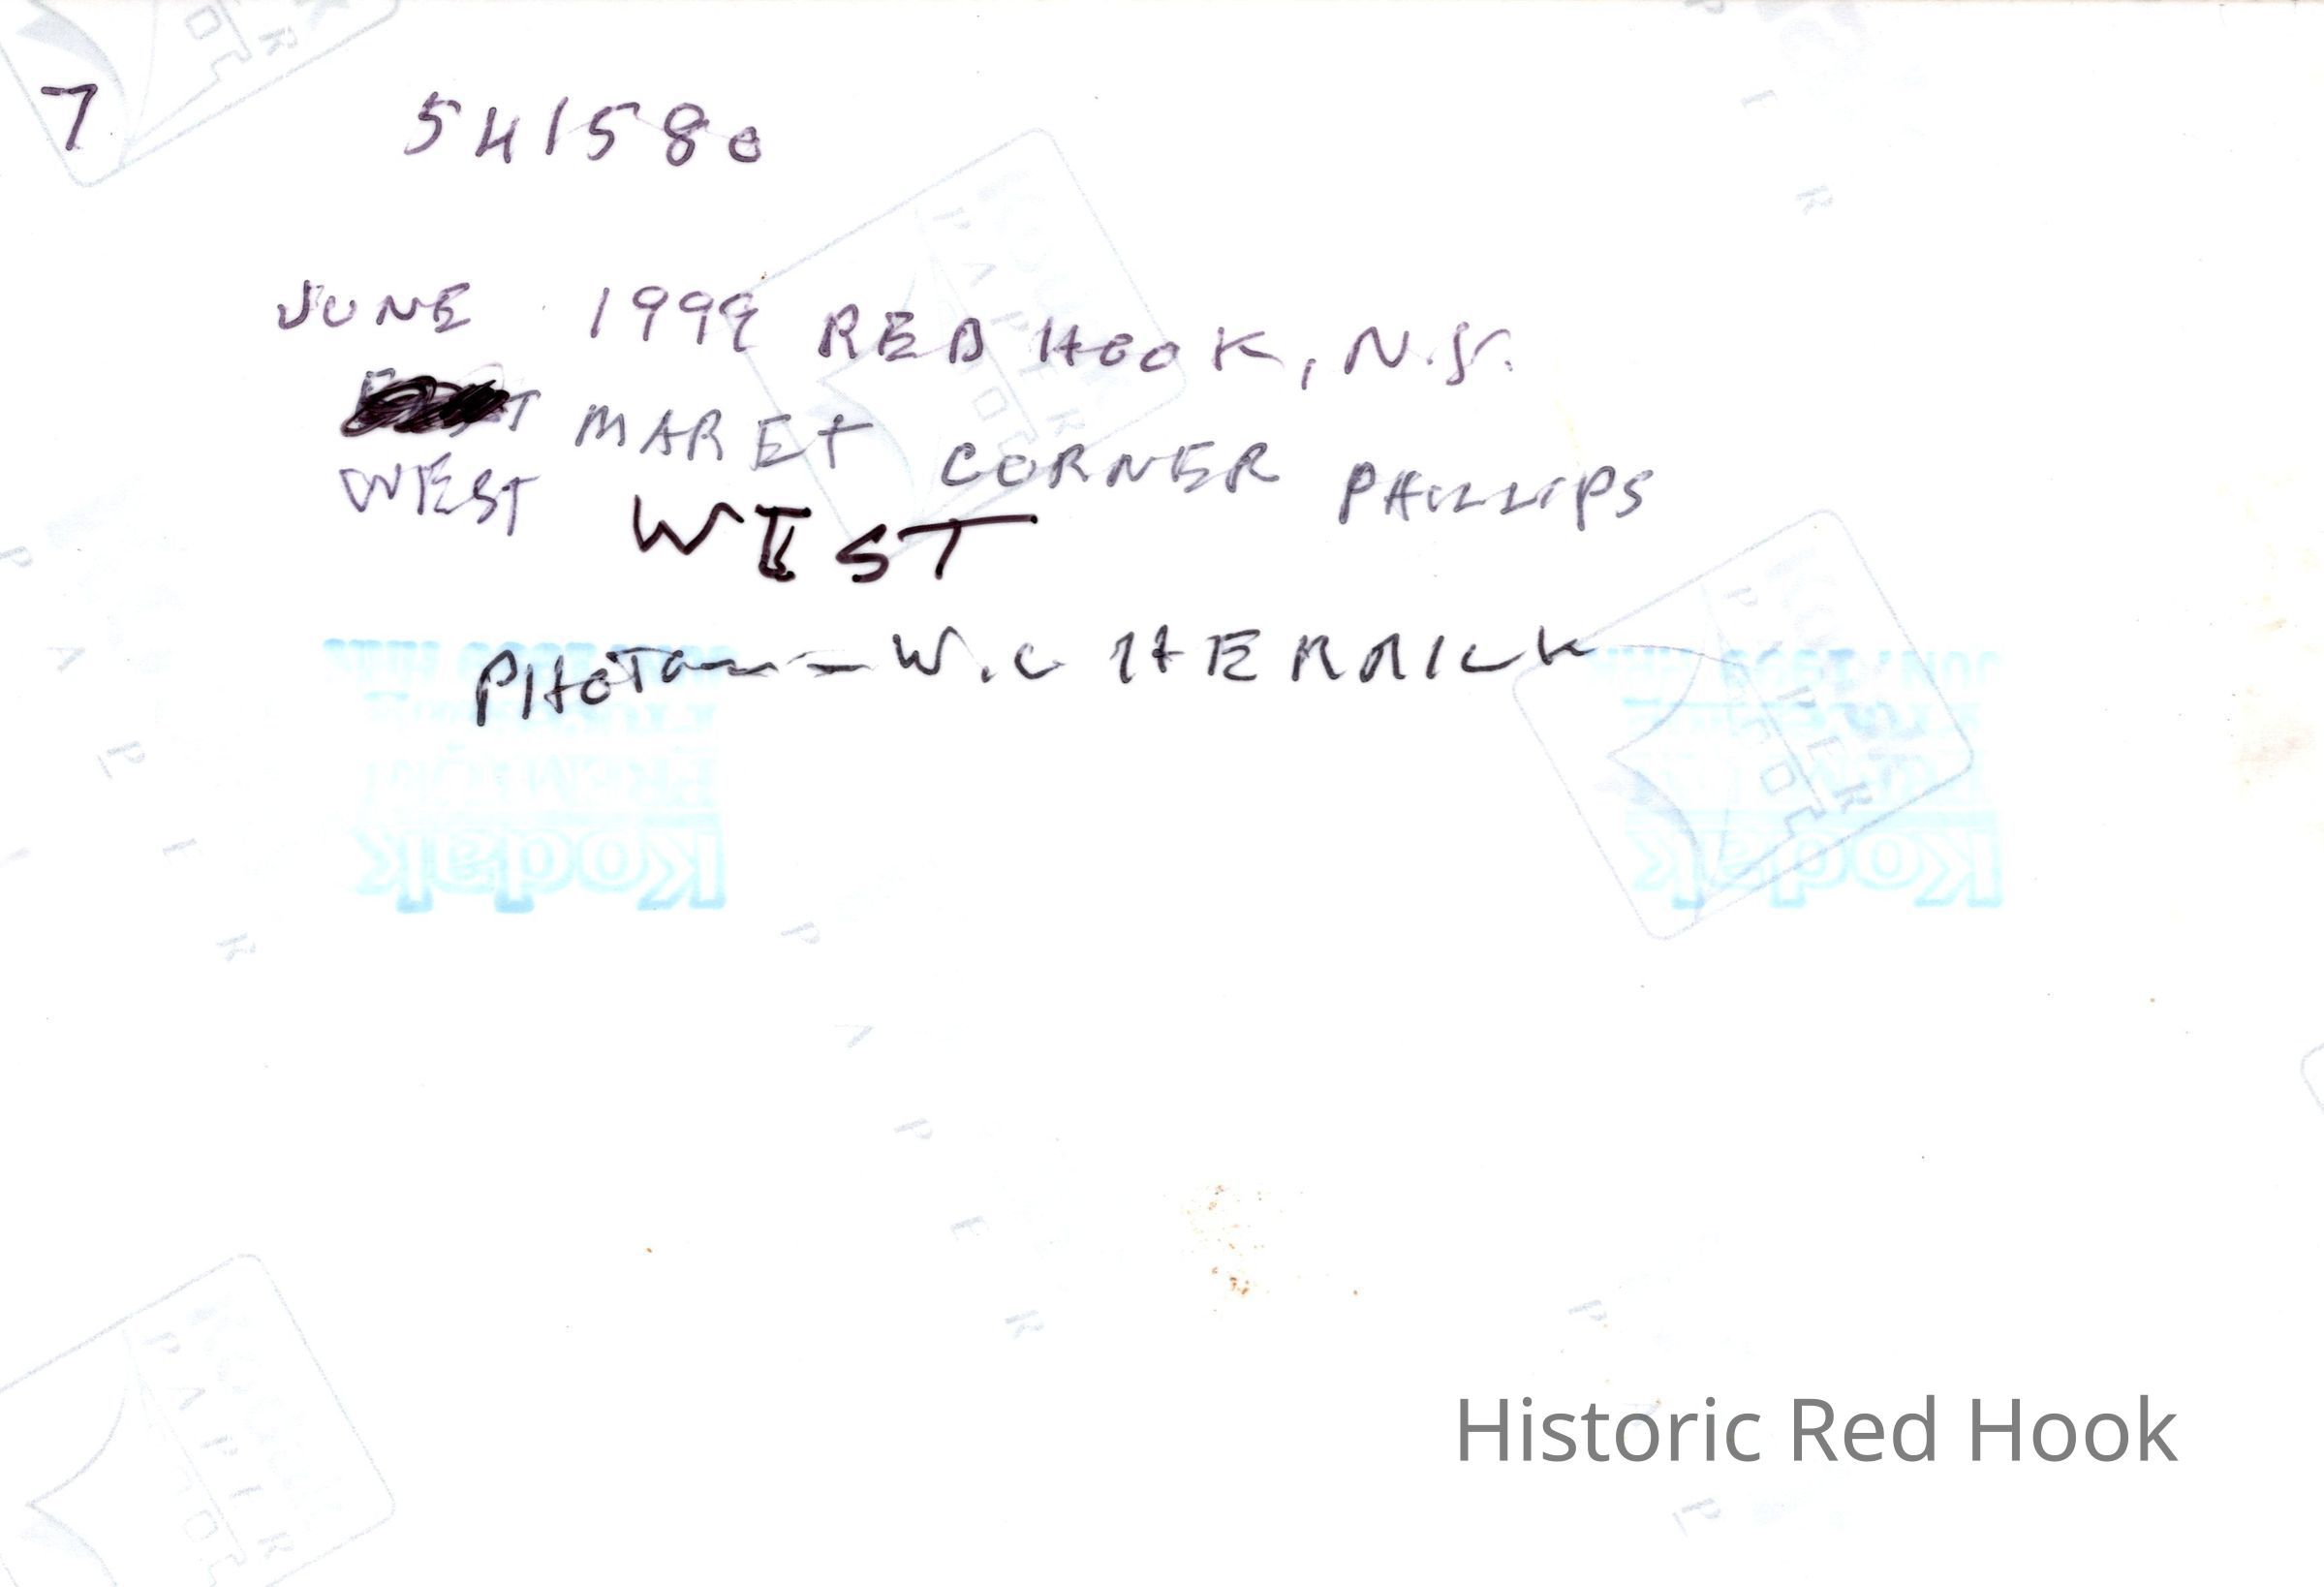 7 541580
JUNE 1999 RED HOOK, N.Y.
MARET CORNER PHILLIPS
WEST WEST
PHOTO -- W.C HERRICK
Kodak Kodak
Historic Red Hook